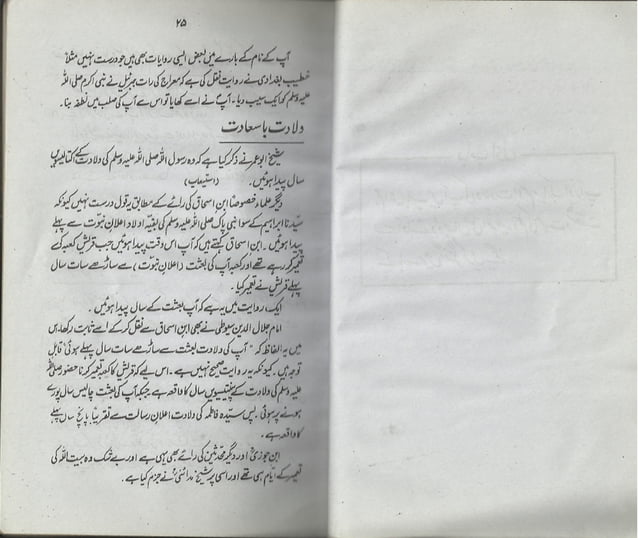 ۲۵
آپ کے نام کے بارے میں بعض ایسی روایات بھی ہیں جو درست نہیں مثلاً
خطیب بغدادی نے روایت نقل کی ہے کہ معراج کی رات جبرئیل نے نبی اکرم صلی اللہ
علیہ وسلم کو ایک سیب دیا۔ آپ نے اسے کھایا تو اس سے آپ کی صلب میں نطفہ بنا۔
ولادت باسعادت
شیخ ابو عمر نے ذکر کیا ہے کہ وہ رسول اللہ صلی اللہ علیہ وسلم کی ولادت کے اکتالیسویں
سال پیدا ہوئیں۔ (استیعاب)
دیگر علماء خصوصاً ابن اسحاق کی رائے کے مطابق یہ قول درست نہیں کیونکہ
سیدنا ابراہیم کے سوا نبی پاک صلی اللہ علیہ وسلم کی بقیہ اولاد اعلان نبوت سے پہلے
پیدا ہوئیں۔ ابن اسحاق کہتے ہیں کہ آپ اس وقت پیدا ہوئیں جب قریش کعبہ کی
تعمیر کر رہے تھے اور کعبہ آپ کی بعثت (اعلان نبوت) سے ساڑھے سات سال
پہلے قریش نے تعمیر کیا۔
ایک روایت میں یہ ہے کہ آپ بعثت کے سال پیدا ہوئیں۔
امام جلال الدین سیوطی نے بھی ابن اسحاق سے نقل کر کے اسے ثابت رکھا۔ اس
میں یہ الفاظ کہ "آپ کی ولادت بعثت سے ساڑھے سات سال پہلے ہوئی" قابل
توجہ ہیں۔ کیونکہ یہ روایت صحیح نہیں ہے۔ اس لیے کہ قریش کا کعبہ تعمیر کرنا حضور صلی اللہ
علیہ وسلم کی ولادت کے پینتیسویں سال کا واقعہ ہے جبکہ آپ کی بعثت چالیس سال پورے
ہونے پر ہوئی۔ پس سیدہ فاطمہ کی ولادت اعلان رسالت سے تقریباً پانچ سال پہلے
کا واقعہ ہے۔
ابن جوزی اور دیگر محدثین کی رائے بھی یہی ہے اور بے شک وہ بیت اللہ کی
تعمیر کے ایام ہی تھے اور اسی پر شیخ مدائنی نے جزم کیا ہے۔